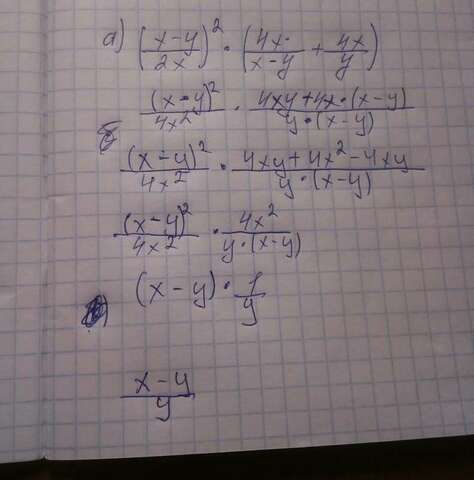 a) ((x-y)/(2x))² · (4x/(x-y) + 4x/y)
(x-y)²/(4x²) · (4xy+4x·(x-y))/(y·(x-y))
(x-y)²/(4x²) · (4xy+4x²-4xy)/(y·(x-y))
(x-y)²/(4x²) · 4x²/(y·(x-y))
(x-y)·1/y
(x-y)/y